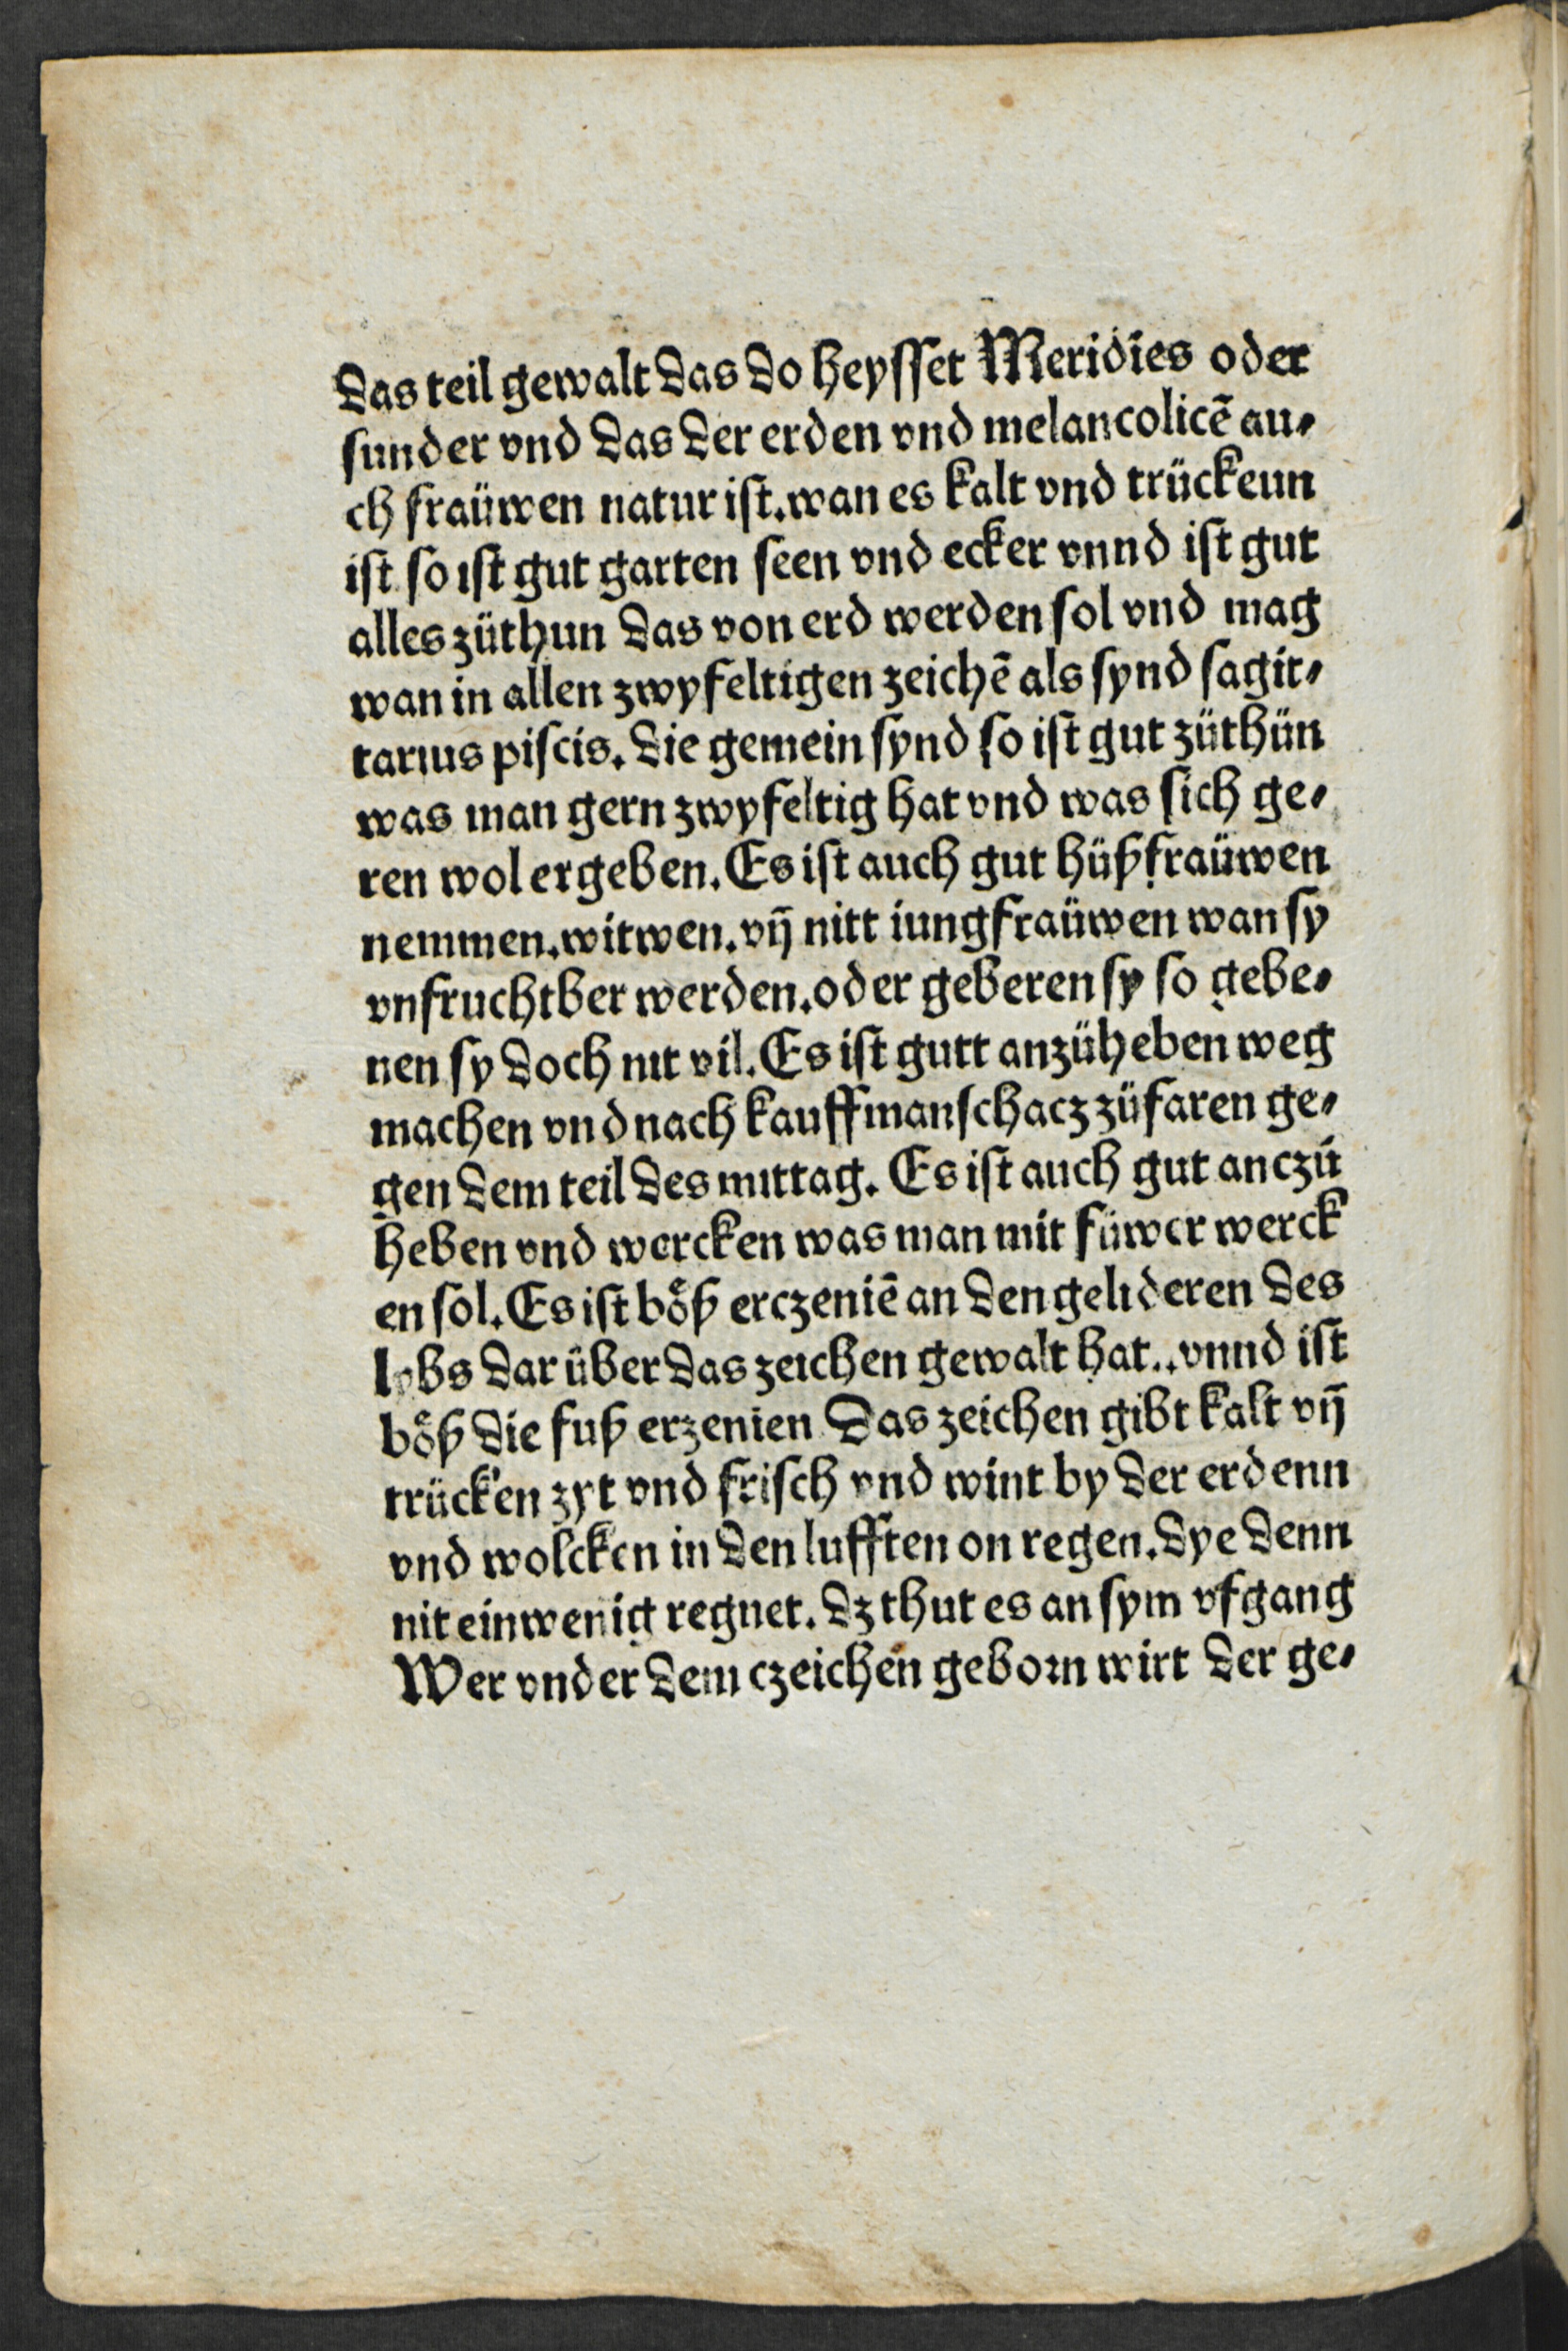 das teil gewalt das do heysset Meridies oder
sunder vnd das der erden vnd melancolicē au⸗
ch fraüwen natur ist.wan es kalt vnd trückeun
ist so ist gut garten seen vnd ecker vnnd ist gut
alles züthun das von erd werden sol vnd mag
wan in allen zwyfeltigen zeichē als synd sagit⸗
tarius piscis. die gemein synd so ist gut züthün
was man gern zwyfeltig hat vnd was sich ge⸗
ren wol ergeben. Es ist auch gut hüßfraüwen
nemmen.witwen.vn̄ nitt iungfraüwen wan sy
vnfruchtber werden.oder geberen sy so gebe⸗
nen sy doch nit vil. Es ist gutt anzüheben weg
machen vnd nach kauffmanschacz züfaren ge⸗
gen dem teil des mittag. Es ist auch gut anczü
heben vnd wercken was man mit füwer werck
en sol. Es ist böß erczeniē an den gelideren des
lybs dar über das zeichen gewalt hat..vnnd ist
böß die fuß erzenien Das zeichen gibt kalt vn̄
trücken zyt vnd frisch vnd wint by der erdenn
vnd wolcken in den lufften on regen. dye denn
nit ein wenig regnet. dz thut es an sym vfgang
Wer vnder dem czeichen geborn wirt der ge⸗